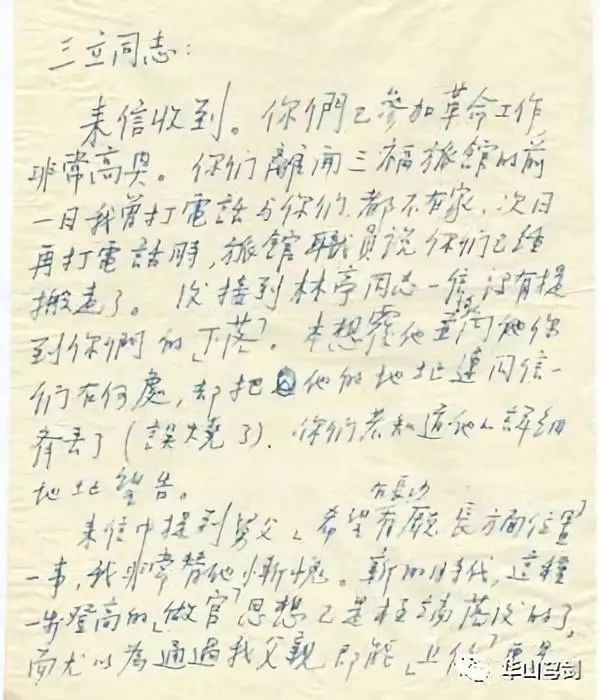 三立同志:
来信收到。你們已參加革命工作
非常高興。你们離開三福旅館的前
一日我曾打電話与你们,都不在家,次日
再打電話時,旅館職員説你们已經
搬走了。後接到林亭同志一信,没有提
到你們的「下落」。本想覆他並询问他你
们在何處,却把他的地址連同信一
齊丢了(誤燒了)。你們若知道他的詳細
地址望告。
在長沙
来信中提到舅父「希望有廳長方面位置」
一事,我非常替他慚愧。新的時代,這種
一步登高的「做官」思想已是極端落後的了,
而尤以為通過我父親即能「上任」更是
华山穹剑